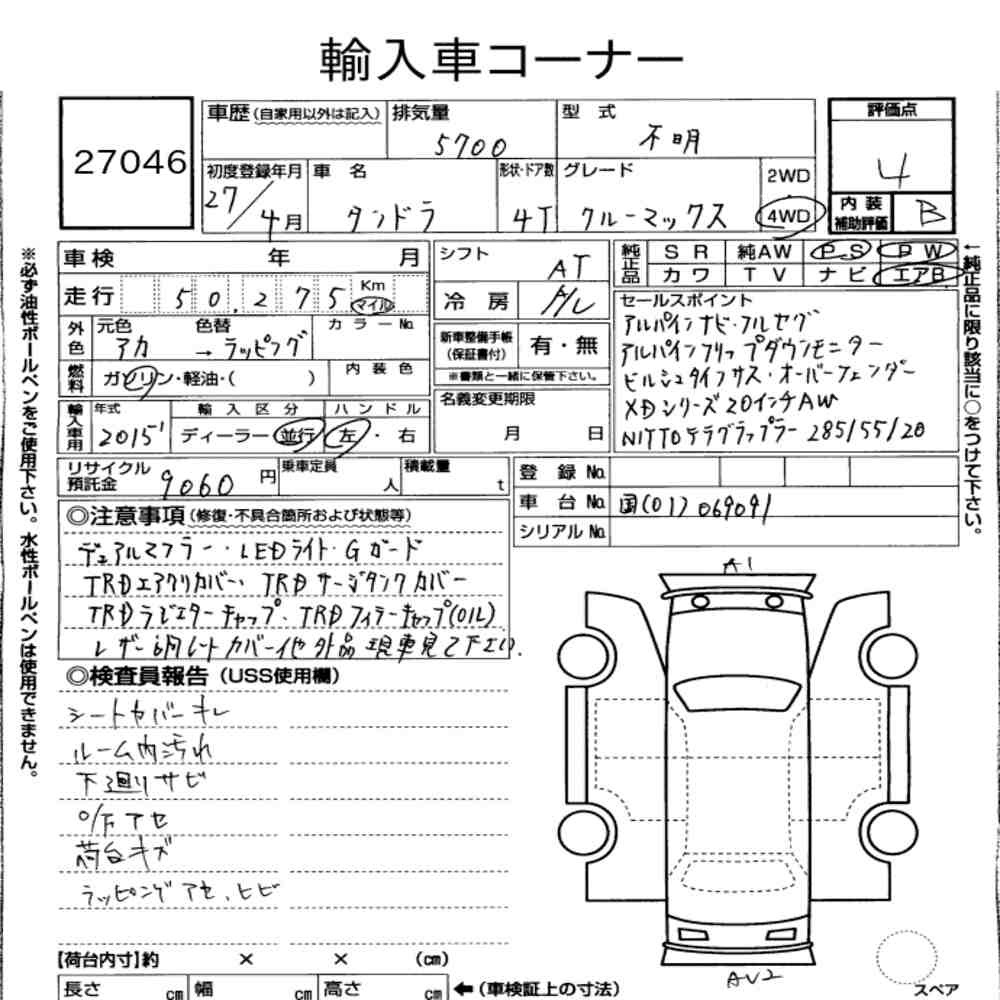 輸入車コーナー
27046
車歴(自家用以外は記入) 排気量 5700 型 式 不明
評価点 4
初度登録年月 27/4月 車 名 タンドラ 形状・ドア数 4T グレード クルーマックス 2WD 4WD
内装補助評価 B
車検 年 月
走行 50,275 Km マイル
外色 元色 アカ 色替 → ラッピング カラーNo.
燃料 ガソリン・軽油・( ) 内装色
輸入車用 年式 2015' 輸入区分 ディーラー 並行 ハンドル 左・右
シフト AT
冷房 A/C
新車整備手帳(保証書付) 有・無
※書類と一緒に保管下さい。
名義変更期限
月 日
純正品 SR 純AW P.S P W
カワ TV ナビ エアB
セールスポイント
アルパインナビ・フルセグ
アルパインフリップダウンモニター
ビルシュタインサス・オーバーフェンダー
XDシリーズ20インチAW
NITTOテラグラップラー 285/55/20
リサイクル預託金 9060 円 乗車定員 人 積載量 t
登録No.
車台No. 国(01)069091
シリアルNo.
◎注意事項(修復・不具合箇所および状態等)
デュアルマフラー・LEDライト・Gガード
TRDエアクリカバー、TRDサージタンクカバー
TRDラジエターキャップ・TRDフィラーキャップ(OIL)
レザー調シートカバー他外品 現車見て下さい.
◎検査員報告(USS使用欄)
シートカバーキレ
ルーム内汚れ
下廻りサビ
O/Fアセ
荷台キズ
ラッピングアセ、ヒビ
A1
AU2
スペア
【荷台内寸】約 × × (cm)
長さ cm 幅 cm 高さ cm ←(車検証上の寸法)
※必ず油性ボールペンをご使用下さい。水性ボールペンは使用できません。
←純正品に限り該当に○をつけて下さい。